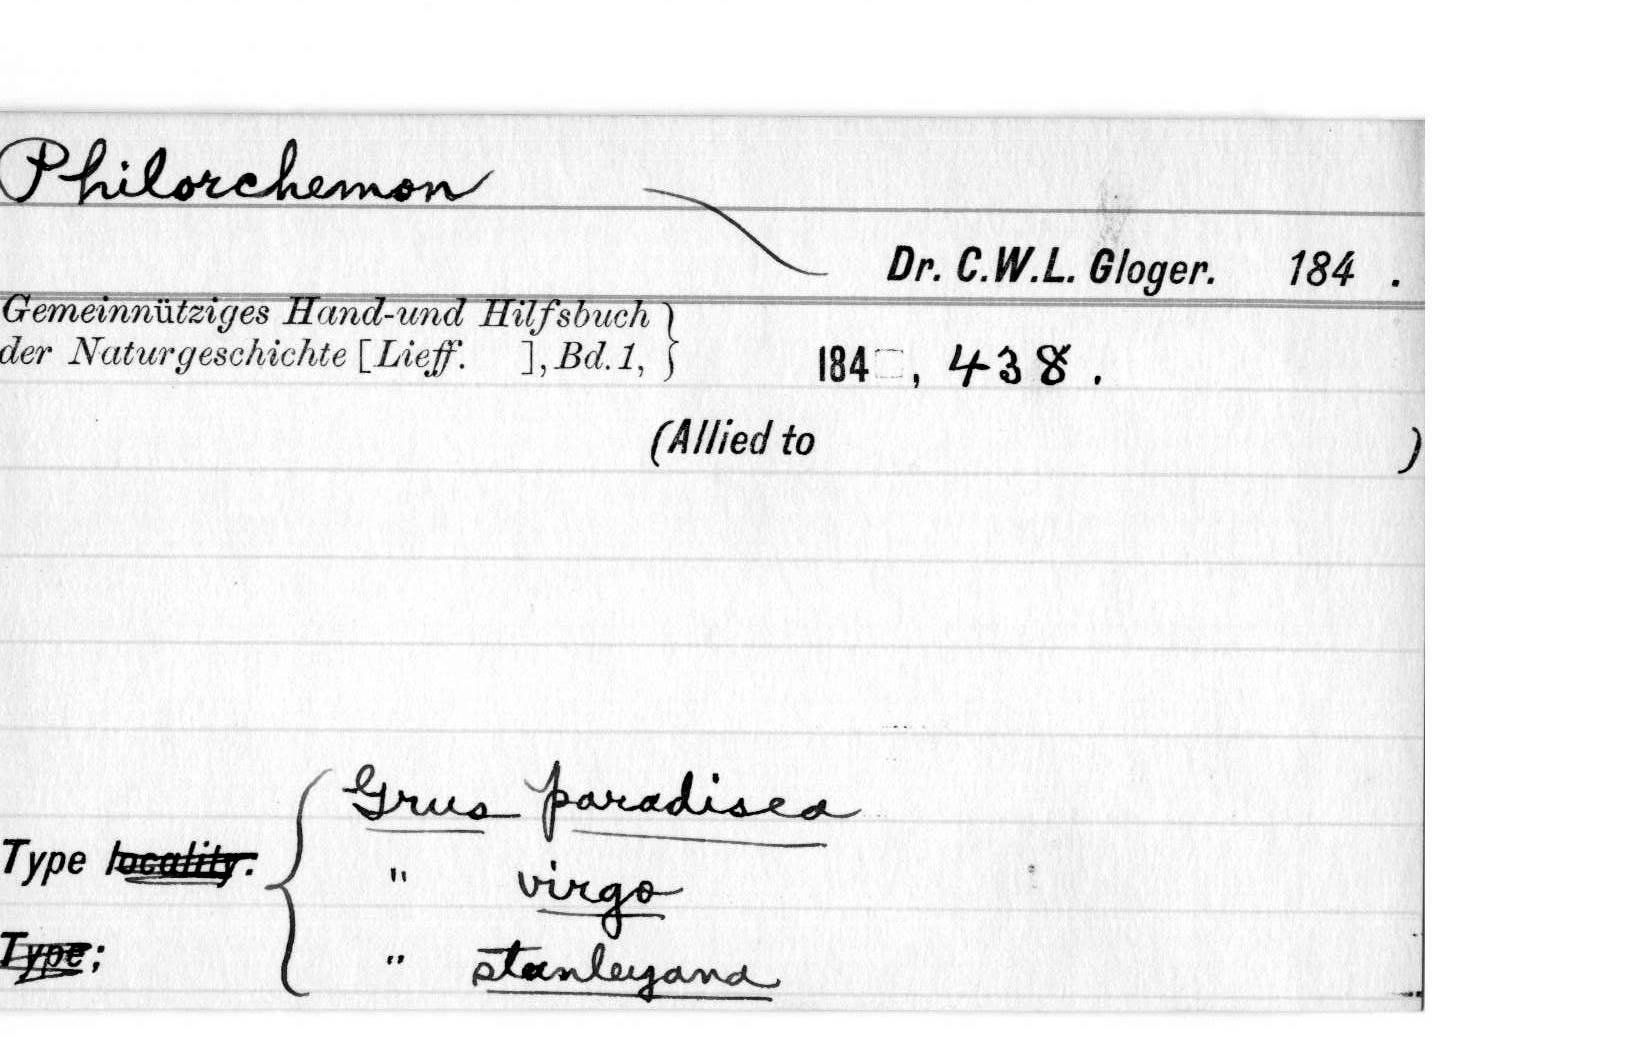 Philorchemon
Dr. C.W.L. Gloger. 184 .
Gemeinnütziges Hand-und Hilfsbuch
der Naturgeschichte [Lieff. ], Bd. 1, } 184 , 438.
(Allied to )
Grus paradisea
Type locality. { " virgo
Type; " stanleyana